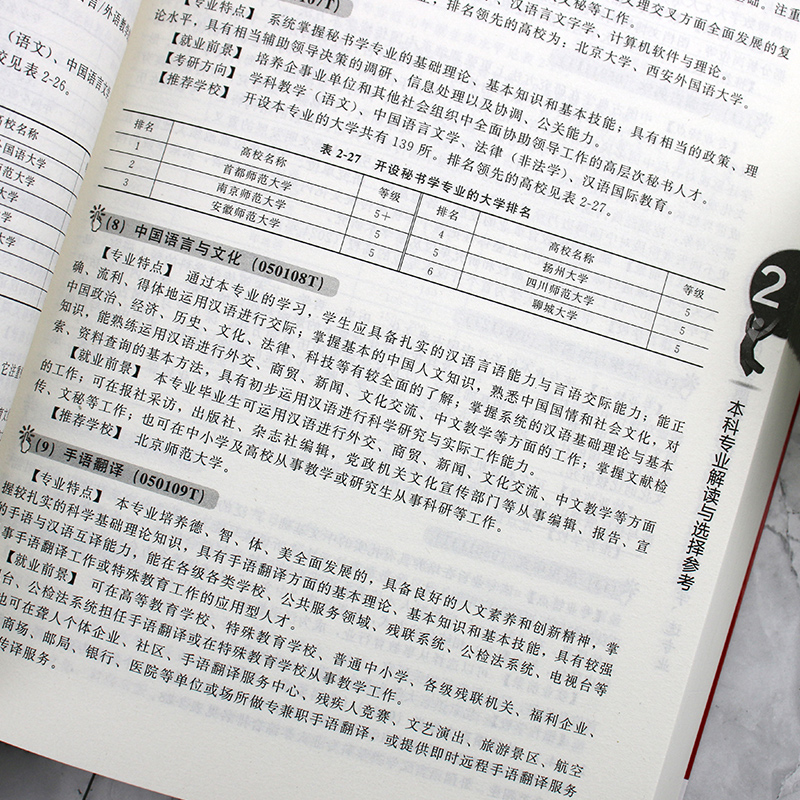 言/外语教学
（语文）、中国语言文
校见表 2-26。
高校名称
外国语大学
范大学
范大学
范大学
大学
107T）
文理交叉方面全面发展的复
、汉语言文字学、计算机软件与理论。
排名领先的高校为：北京大学、西安外国语大学。
【专业特点】 系统掌握秘书学专业的基础理论、基本知识和基本技能；具有相当的政策、理
论水平，具有相当辅助领导决策的调研、信息处理以及协调、公关能力。
【就业前景】 培养企事业单位和其他社会组织中全面协助领导工作的高层次秘书人才。
【考研方向】 学科教学（语文）、中国语言文学、法律（非法学）、汉语国际教育。
【推荐学校】 开设本专业的大学共有 139 所。排名领先的高校见表 2-27。
表 2-27 开设秘书学专业的大学排名
排名 高校名称 等级 排名 高校名称 等级
1 首都师范大学 5+ 4 扬州大学 5
2 南京师范大学 5 5 四川师范大学 5
3 安徽师范大学 5 6 聊城大学 5
（8）中国语言与文化（050108T）
【专业特点】 通过本专业的学习，学生应具备扎实的汉语言语能力与言语交际能力；能正
确、流利、得体地运用汉语进行交际；掌握基本的中国人文知识，熟悉中国国情和社会文化，对
中国政治、经济、历史、文化、法律、科技等有较全面的了解；掌握系统的汉语基础理论与基本
知识，能熟练运用汉语进行外交、商贸、新闻、文化交流、中文教学等方面的工作；掌握文献检
索、资料查询的基本方法，具有初步运用汉语进行科学研究与实际工作能力。
【就业前景】 本专业毕业生可运用汉语进行外交、商贸、新闻、文化交流、中文教学等方面
的工作；可在报社采访，出版社、杂志社编辑，党政机关文化宣传部门等从事编辑、报告、宣
传、文秘等工作；也可在中小学及高校从事教学或研究生从事科研等工作。
【推荐学校】 北京师范大学。
（9）手语翻译（050109T）
【专业特点】 本专业培养德、智、体、美全面发展的，具备良好的人文素养和创新精神，掌
握较扎实的科学基础理论知识，具有手语翻译方面的基本理论、基本知识和基本技能，具有较强
的手语与汉语互译能力，能在各级各类学校、公共服务领域、残联系统、公检法系统、电视台等
事手语翻译工作或特殊教育工作的应用型人才。
【就业前景】 可在高等教育学校、特殊教育学校、普通中小学、各级残联机关、福利企业、
台、公检法系统担任手语翻译或在特殊教育学校从事教学工作。
也可在聋人个体企业、社区、手语翻译服务中心、残疾人竞赛、文艺演出、旅游景区、航空
商场、邮局、银行、医院等单位或场所做专兼职手语翻译，或提供即时远程手语翻译服务
传译服务。
2
本科专业解读与选择参考